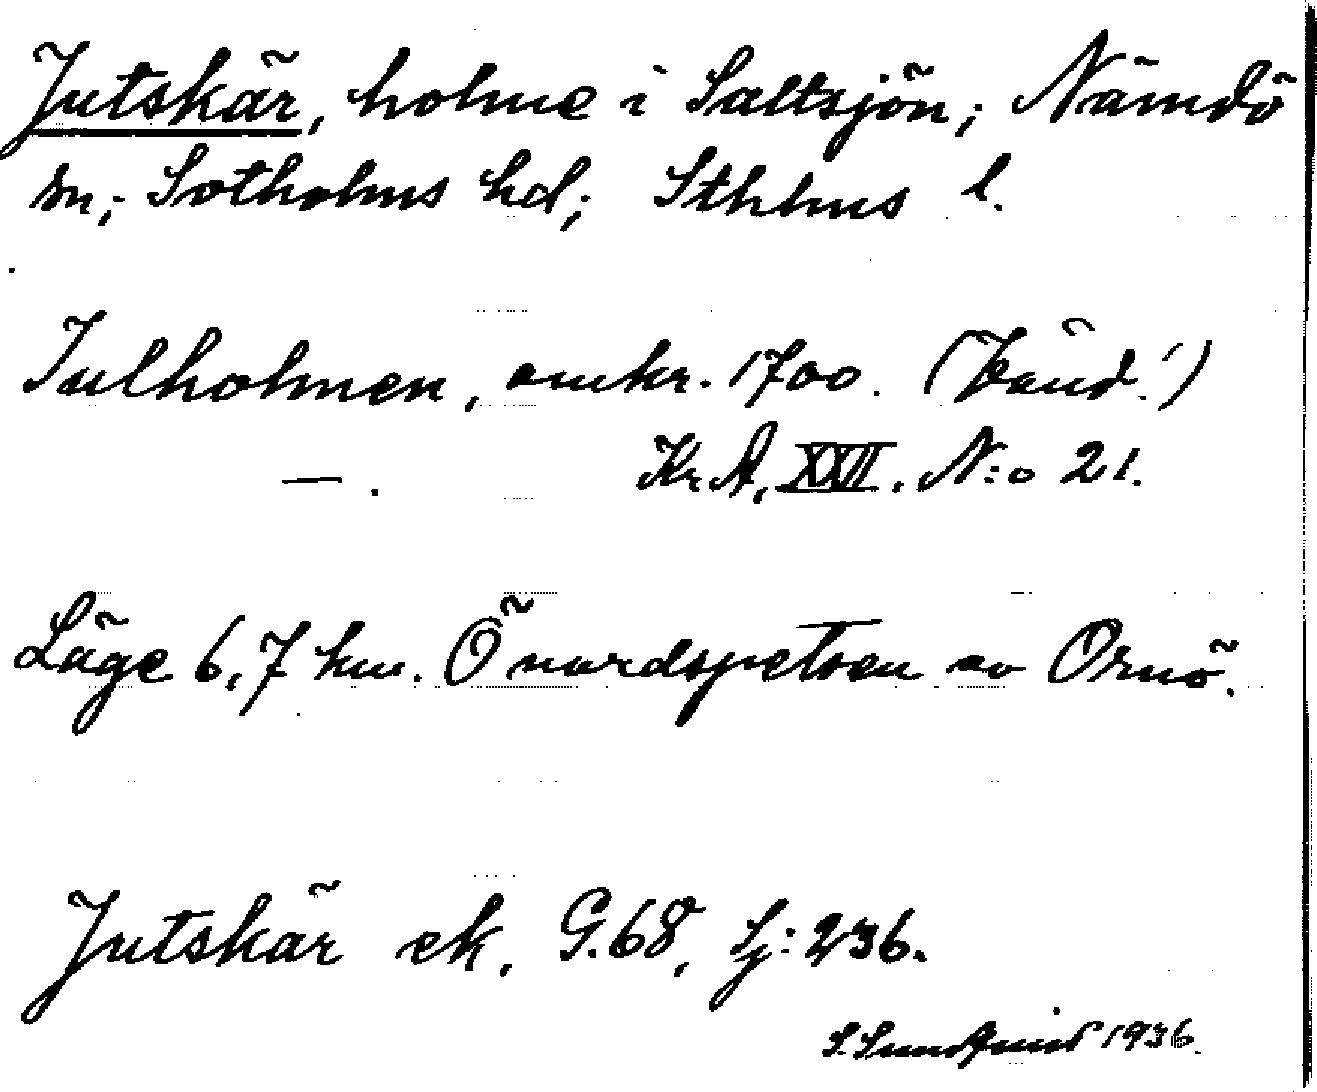 Jutskär, holme i Saltsjön; Nämdö
sn; Sotholms hd; Sthlms l.
Julholmen, omkr. 1700.
—. Kr.A, XXII. N:o 21.
Läge 6,7 km. Ö nordspetsen av Ornö.
Jutskär ek, G.68, Sj: 236.
S. Sundquist 1936.